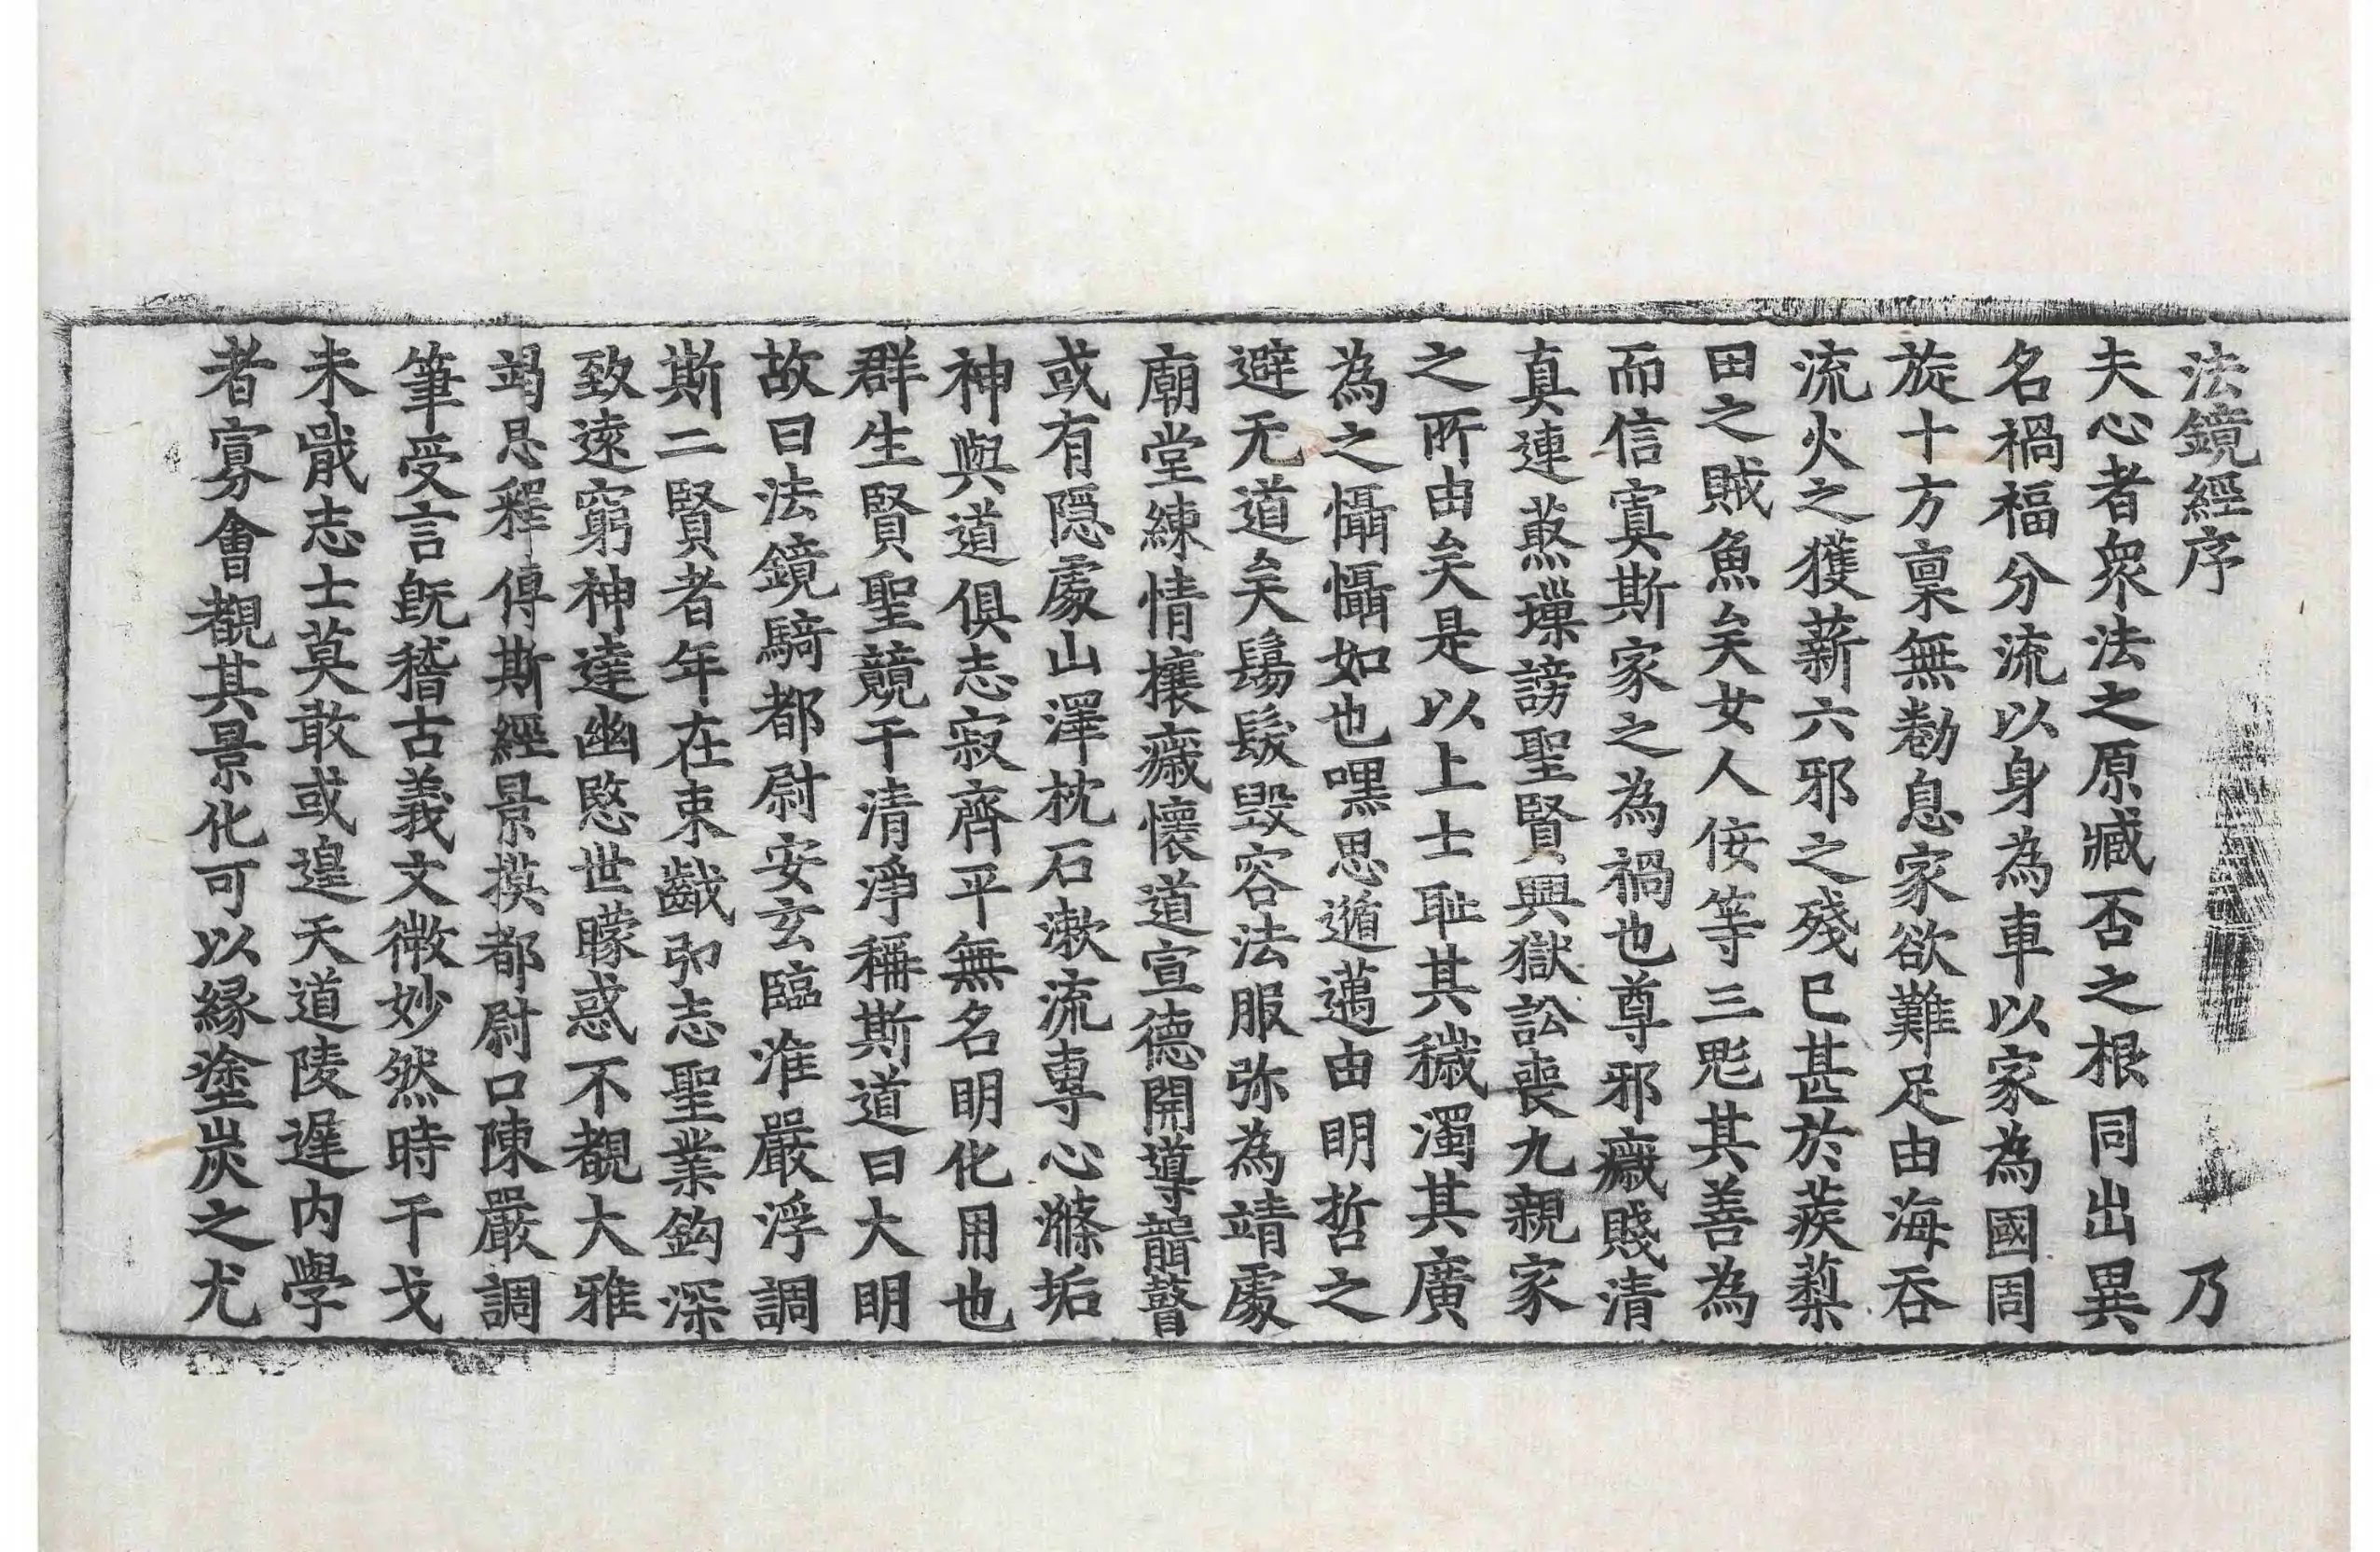 法鏡經序 乃
夫心者衆法之原臧否之根同出異
名禍福分流以身為車以家為國周
旋十方禀無勌息家欲難足由海吞
流火之獲薪六邪之殘已甚於蒺䔧
田之賊魚矣女人佞等三鬽其善為
而信寘斯家之為禍也尊邪癥賤清
真連藂璅謗聖賢興獄訟喪九親家
之所由矣是以上士恥其穢濁其廣
為之懾懾如也嘿思遁邁由明哲之
避无道矣鬄髮毀容法服弥為靖處
廟堂練情攘癥懷道宣德開導聾瞽
或有隱處山澤枕石漱流專心滌垢
神與道俱志寂齊平無名明化用也
群生賢聖競于清淨稱斯道曰大明
故曰法鏡騎都尉安玄臨淮嚴浮調
斯二賢者年在束齓弱志聖業鈎深
致遠窮神達幽愍世矇惑不覩大雅
竭思釋傳斯經景摸都尉口陳嚴調
筆受言既稽古義文微妙然時干戈
未戢志士莫敢或遑天道陵遲内學
者寡會覩其景化可以縁塗炭之尤